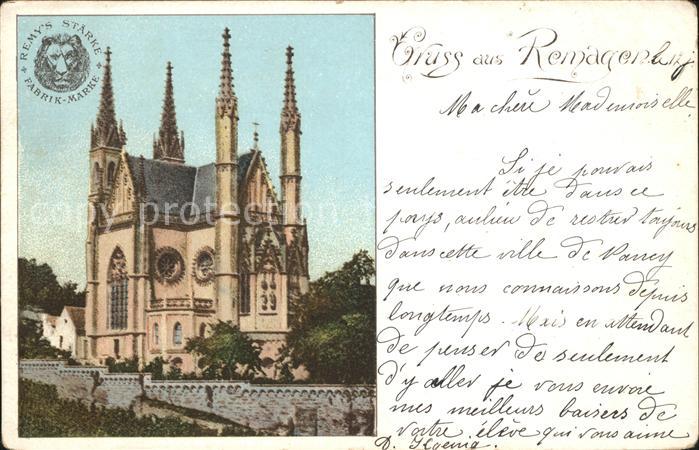 REMY'S STÄRKE
FABRIK-MARKE
Gruss aus Remagen. le 17
Ma chère Mademoiselle,
Si je pouvais
seulement être dans ce
pays, aulieu de rester toujours
dans cette ville de Nancy
que nous connaissons depuis
longtemps. Mais en attendant
de penser de seulement
d'y aller je vous envoie
mes meilleurs baisers de
votre élève qui vous aime
D.
copyright protection